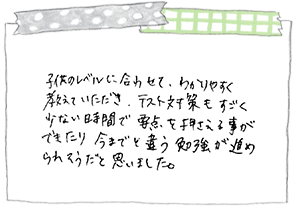 子供のレベルに合わせて、わかりやすく
教えていただき、テスト対策もすごく
少ない時間で要点を押さえる事が
できたり今までと違う勉強が進め
られそうだと思いました。